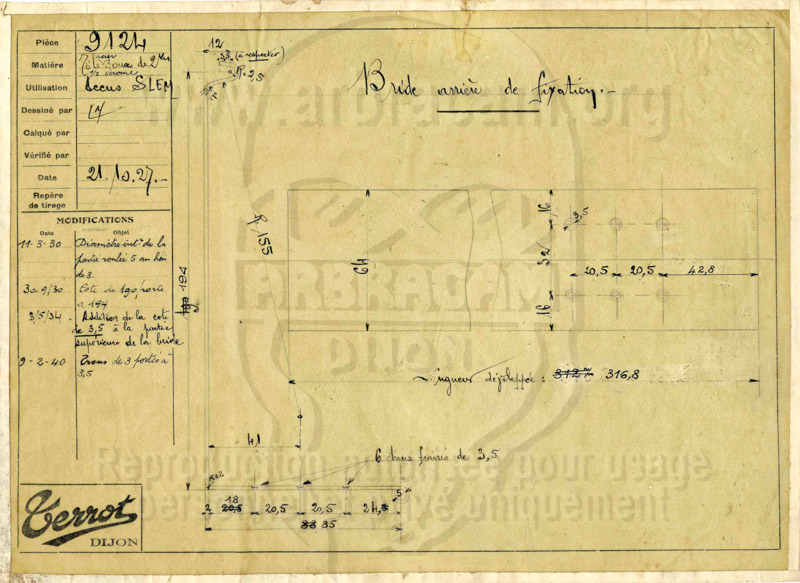 Pièce 9124
Matière Tôle doux de 2 m/m
Utilisation Accus SLEM
Dessiné par
Calqué par
Vérifié par
Date 21.10.27.-
Repère
de tirage
MODIFICATIONS
Date Objet
11-3-30 Diamètre intr de la
partie roulée 5 au lieu
de 3.
30-9/30 Cote de 190, porté
à 194
3/5/34. Addition de la cote
de 3,5 à la partie
supérieure de la bride
9-2-40 Trous de 3 portés à
3,5
Terrot
DIJON
Bride arrière de fixation.-
12
3,5 (à respecter)
R. 2,5
R 155
190 194
64
16
32
16
3,5
20,5 20,5 42,8
Longueur développée : 312 m/m 316,8
41
6 trous fraisés de 3,5
5
18
2 20,5 20,5 20,5 24,5
88 85
www.arbracan.org
ARBRACAN
DIJON
Reproduction autorisée pour usage
personnel et privé uniquement